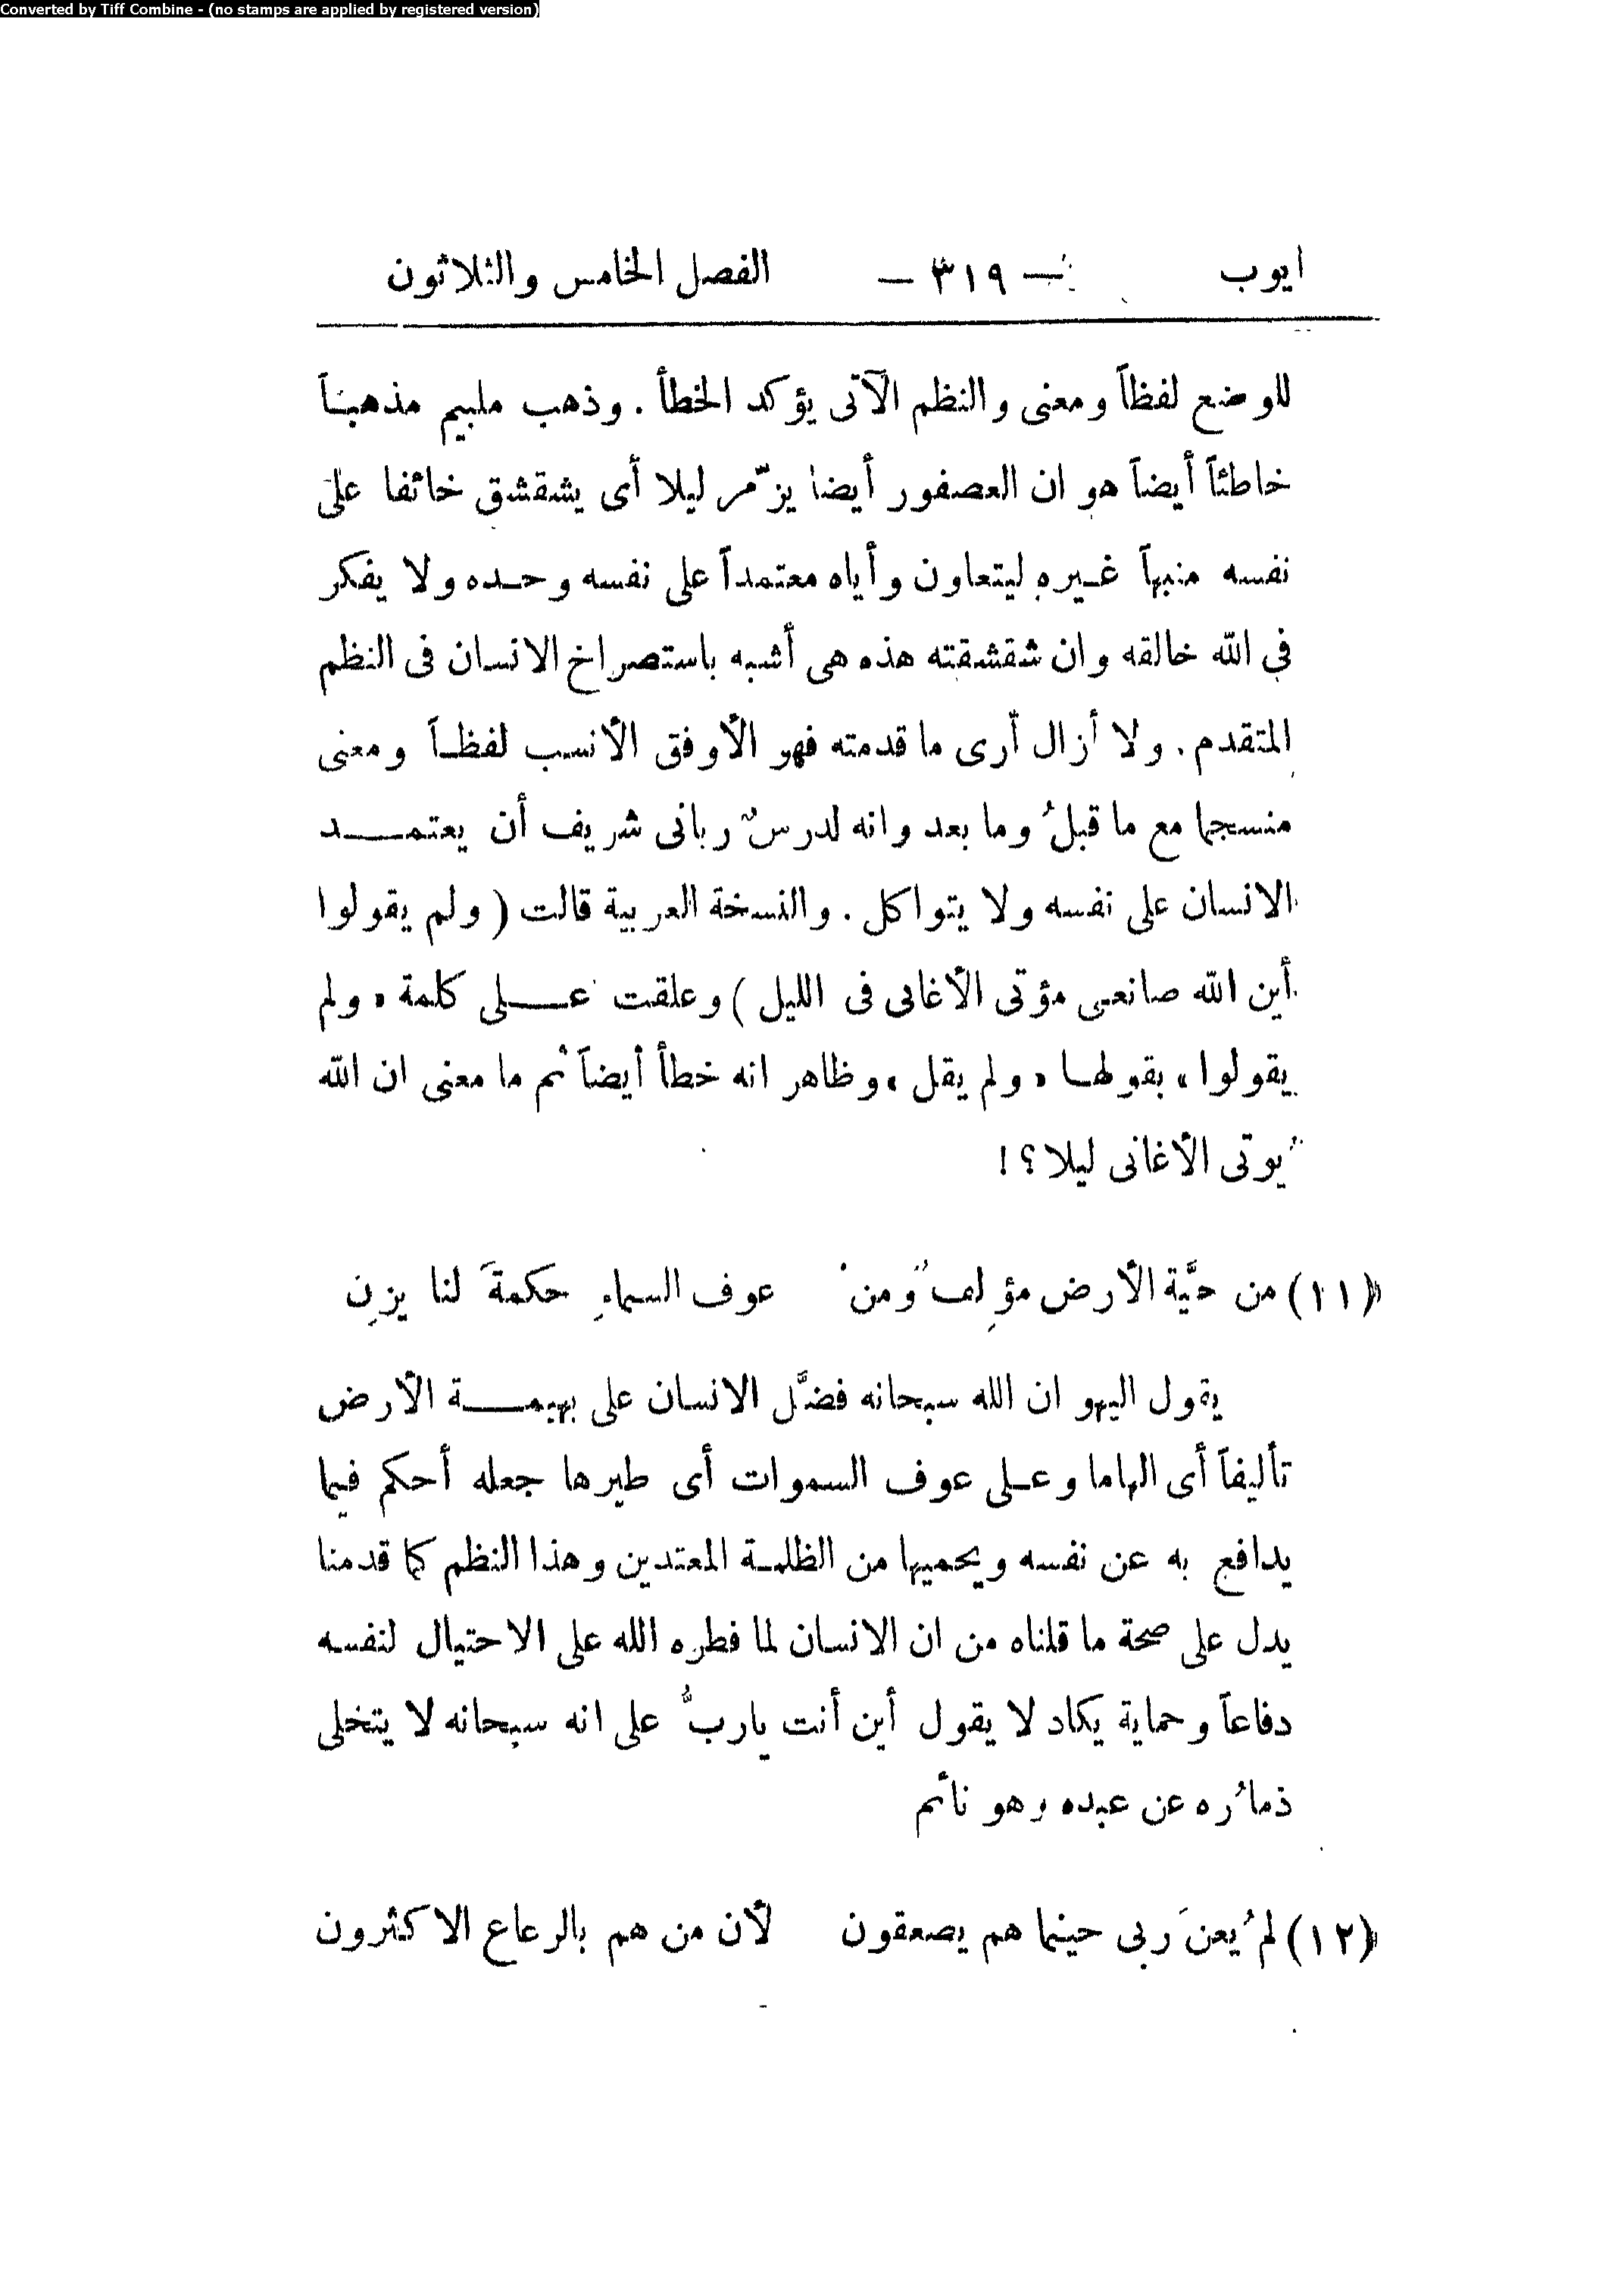 Converted by Tiff Combine - (no stamps are applied by registered version)
ايوب — ٣١٩ — الفصل الخامس والثلاثون
للوضع لفظاً ومعنى والنظم الآتى يؤكد الخطأ . وذهب ملبيم مذهباً
خاطئاً أيضاً هو ان العصفور أيضا يزمّر ليلا أى يشقشق خائفا على
نفسه منبهاً غيره ليتعاون وأياه معتمداً على نفسه وحده ولا يفكر
فى الله خالقه وان شقشقته هذه هى أشبه باستصراخ الانسان فى النظم
المتقدم . ولا أزال أرى ما قدمته فهو الأوفق الأنسب لفظاً ومعنى
منسجما مع ما قبلُ وما بعد وانه لدرسٌ ربانى شريف أن يعتمد
الانسان على نفسه ولا يتواكل . والنسخة العربية قالت ( ولم يقولوا
أين الله صانعى مؤتى الأغانى فى الليل ) وعلقت على كلمة « ولم
يقولوا » بقولها « ولم يقل » وظاهر انه خطأ أيضاً ثم ما معنى ان الله
يُوتى الأغانى ليلا ؟ !
(١١) من حيَّة الأرض مؤلِف وُمن عوف السماءِ حكمةَ لنا يزِن
يقول اليهو ان الله سبحانه فضَّل الانسان على بهيمة الأرض
تأليفاً أى الهاما وعلى عوف السموات أى طيرها جعله أحكم فيما
يدافع به عن نفسه ويحميها من الظلمة المعتدين وهذا النظم كما قدمنا
يدل على صحة ما قلناه من ان الانسان لما فطره الله على الاحتيال لنفسه
دفاعاً وحماية يكاد لا يقول أين أنت يارب على انه سبحانه لا يتخلى
ذماره عن عبده وهو نائم
(١٢) لم يُعنَ ربى حينما هم يصعقون لأن من هم بالرعاع الاكثرون